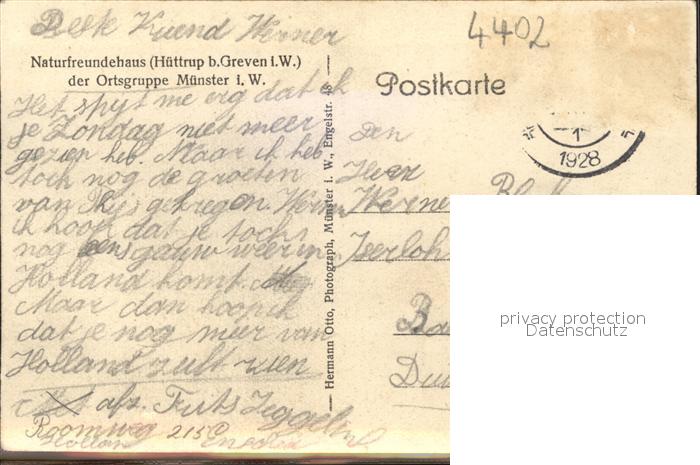 Werner
4402
Naturfreundehaus (Hüttrup b. Greven i. W.)
der Ortsgruppe Münster i. W.
Postkarte
Het spijt me erg dat ik
je Zondag niet meer
gezien heb. Maar ik heb
toch nog de groeten
van gekregen. Werner
ik hoop dat je toch
nog eens gauw weer in
Holland komt.
Maar dan hoop ik
dat je nog meer van
Holland zult zien
afz. Frits
Roomweg 215
Holland
Hermann Otto, Photograph, Münster i. W., Engelstr. 48
1928
Den
Heer
Werner
Iserloh
privacy protection
Datenschutz